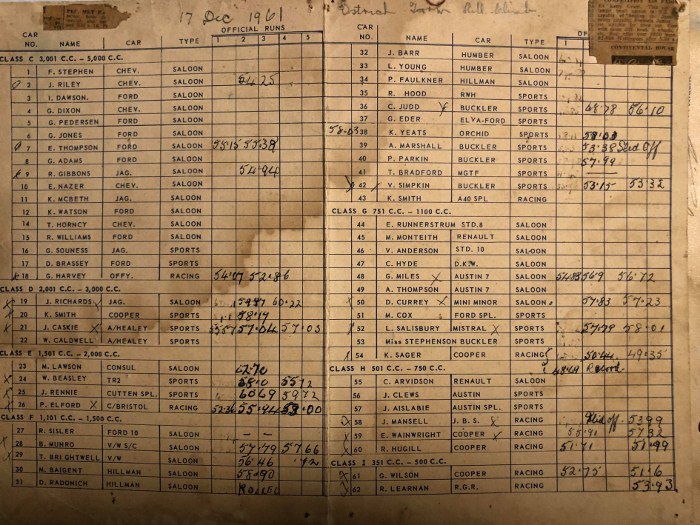 17 Dec 1961
OFFICIAL RUNS
CAR NO. NAME CAR TYPE 1 2 3 4 5
CLASS C 3,001 C.C. – 5,000 C.C.
1 F. STEPHEN CHEV. SALOON
2 J. RILEY CHEV. SALOON 54.25
3 I. DAWSON. FORD SALOON
4 G. DIXON CHEV. SALOON
5 G. PEDERSEN FORD SALOON
6 G. JONES FORD SALOON
7 E. THOMPSON FORD SALOON 55.15 55.38
8 G. ADAMS FORD SALOON
9 R. GIBBONS JAG. SALOON 54.94
10 E. NAZER CHEV. SALOON
11 K. MCBETH JAG. SALOON
12 K. WATSON FORD SALOON
14 T. HORNCY CHEV. SALOON
15 R. WILLIAMS FORD SALOON
16 G. SOUNESS JAG. SPORTS
17 D. BRASSEY FORD SPORTS
18 G. HARVEY OFFY. RACING 54.07 52.86
CLASS D 2,001 C.C. – 3,000 C.C.
19 J. RICHARDS X JAG. SALOON 60.22
20 K. SMITH COOPER SPORTS 58.19
21 J. CASKIE X A/HEALEY SPORTS 57.04 57.03
22 W. CALDWELL A/HEALEY SPORTS
CLASS E 1,501 C.C. – 2,000 C.C.
23 M. LAWSON CONSUL SALOON 62.70
24 W. BEASLEY TR2 SPORTS 58.0 55.12
25 J. RENNIE CUTTEN SPL. SPORTS 60.69 59.72
26 P. ELFORD X C/BRISTOL RACING 52.36 55.94 53.00
CLASS F 1,101 C.C. – 1,500 C.C.
27 R. SISLER FORD 10 SALOON
28 B. MUNRO V/W S/C SALOON 57.79 57.66
29 T. BRIGHTWELL V/W SALOON 56.46
30 M. BAIGENT HILLMAN SALOON 58.90
31 D. RADONICH HILLMAN SALOON ROLLED
CAR NO. NAME CAR TYPE
32 J. BARR HUMBER SALOON
33 L. YOUNG HUMBER SALOON
34 P. FAULKNER HILLMAN SALOON
35 R. HOOD RWH SPORTS
36 C. JUDD BUCKLER SPORTS 68.78 56.10
37 G. EDER ELVA-FORD SPORTS
58.03 38 K. YEATS ORCHID SPORTS 58.03
39 A. MARSHALL BUCKLER SPORTS 55.38 Slid Off
40 P. PARKIN BUCKLER SPORTS 57.99
41 T. BRADFORD MGTF SPORTS
42 V. SIMPKIN BUCKLER SPORTS 53.15 53.32
43 K. SMITH A40 SPL RACING
CLASS G 751 C.C. – 1100 C.C.
44 E. RUNNERSTRUM STD.8 SALOON
45 M. MONTEITH RENAULT SALOON
46 V. ANDERSON STD. 10 SALOON
47 C. HYDE D.K.W. SALOON
48 G. MILES X AUSTIN 7 SALOON 56.9 56.72
49 A. THOMPSON AUSTIN 7 SALOON
50 D. CURREY X MINI MINOR SALOON 57.83 57.23
51 M. COX FORD SPL. SPORTS
52 L. SALISBURY MISTRAL X SPORTS 57.78 58.01
53 Miss STEPHENSON BUCKLER SPORTS
54 K. SAGER COOPER RACING 50.44 49.35
CLASS H 501 C.C. – 750 C.C. 48.49 Record
55 C. ARVIDSON RENAULT SALOON
56 J. CLEWS AUSTIN SPORTS
57 J. AISLABIE AUSTIN SPL. SPORTS
58 J. MANSELL J. B. S. X RACING Slid off 53.99
59 E. WAINWRIGHT COOPER X RACING 57.32
60 R. HUGILL COOPER RACING 51.71 51.99
CLASS I 351 C.C. – 500 C.C.
61 G. WILSON COOPER RACING 52.75 51.6
62 R. LEARNAN R.G.R. RACING 53.93